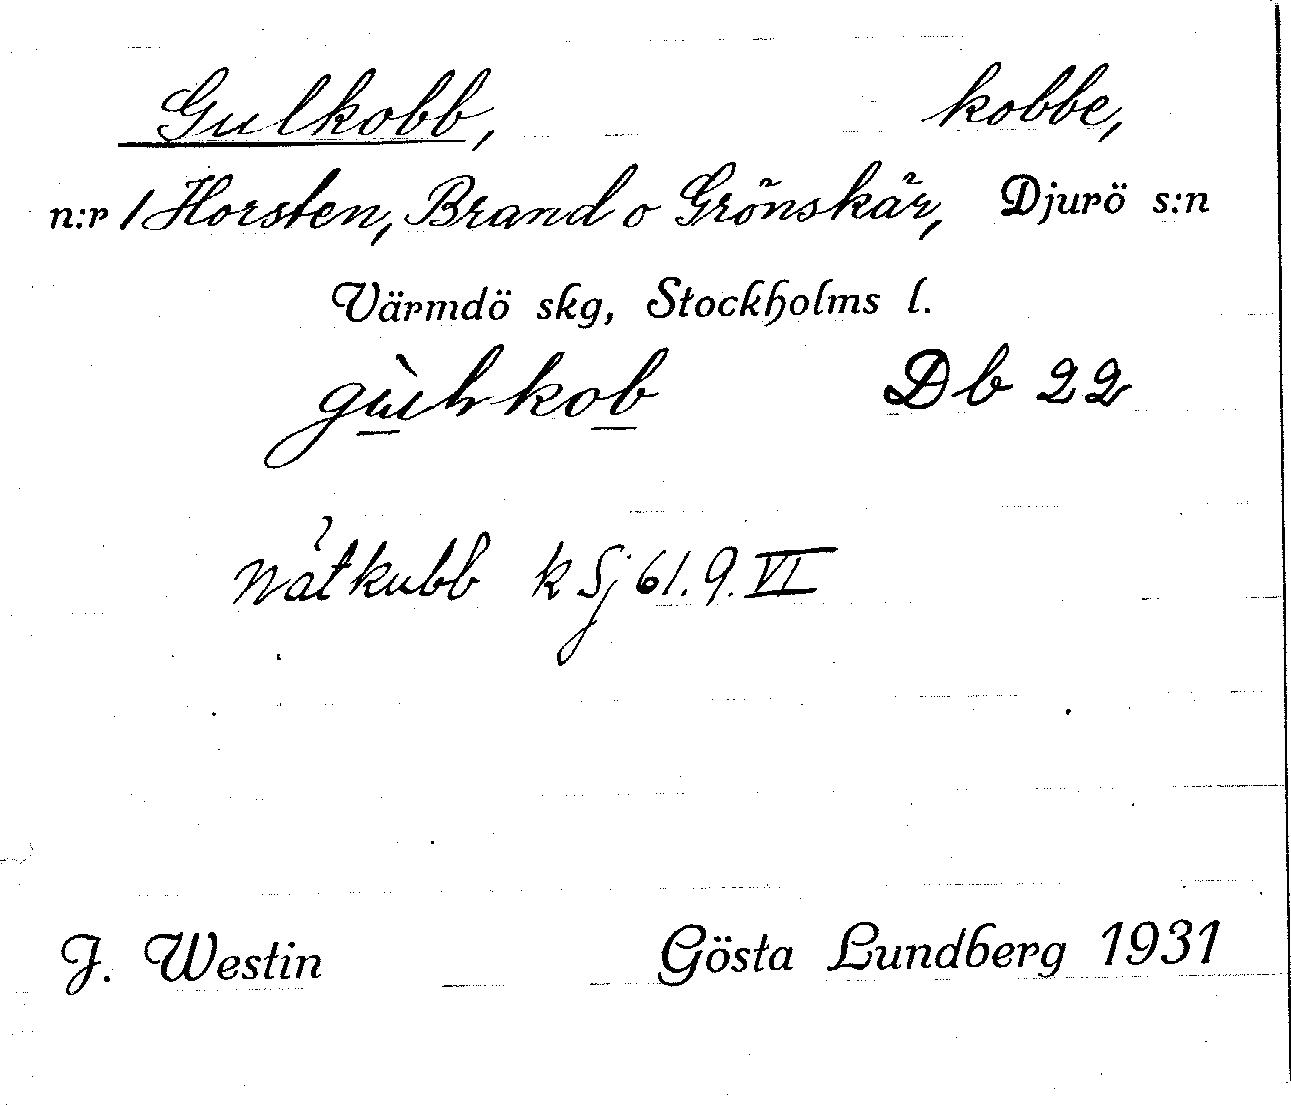 Gulkobb, kobbe,
n:r 1 Horsten, Brand o Grönskär, Djurö s:n
Värmdö skg, Stockholms l.
Db 22
k Sj 61.9.VI
J. Westin Gösta Lundberg 1931